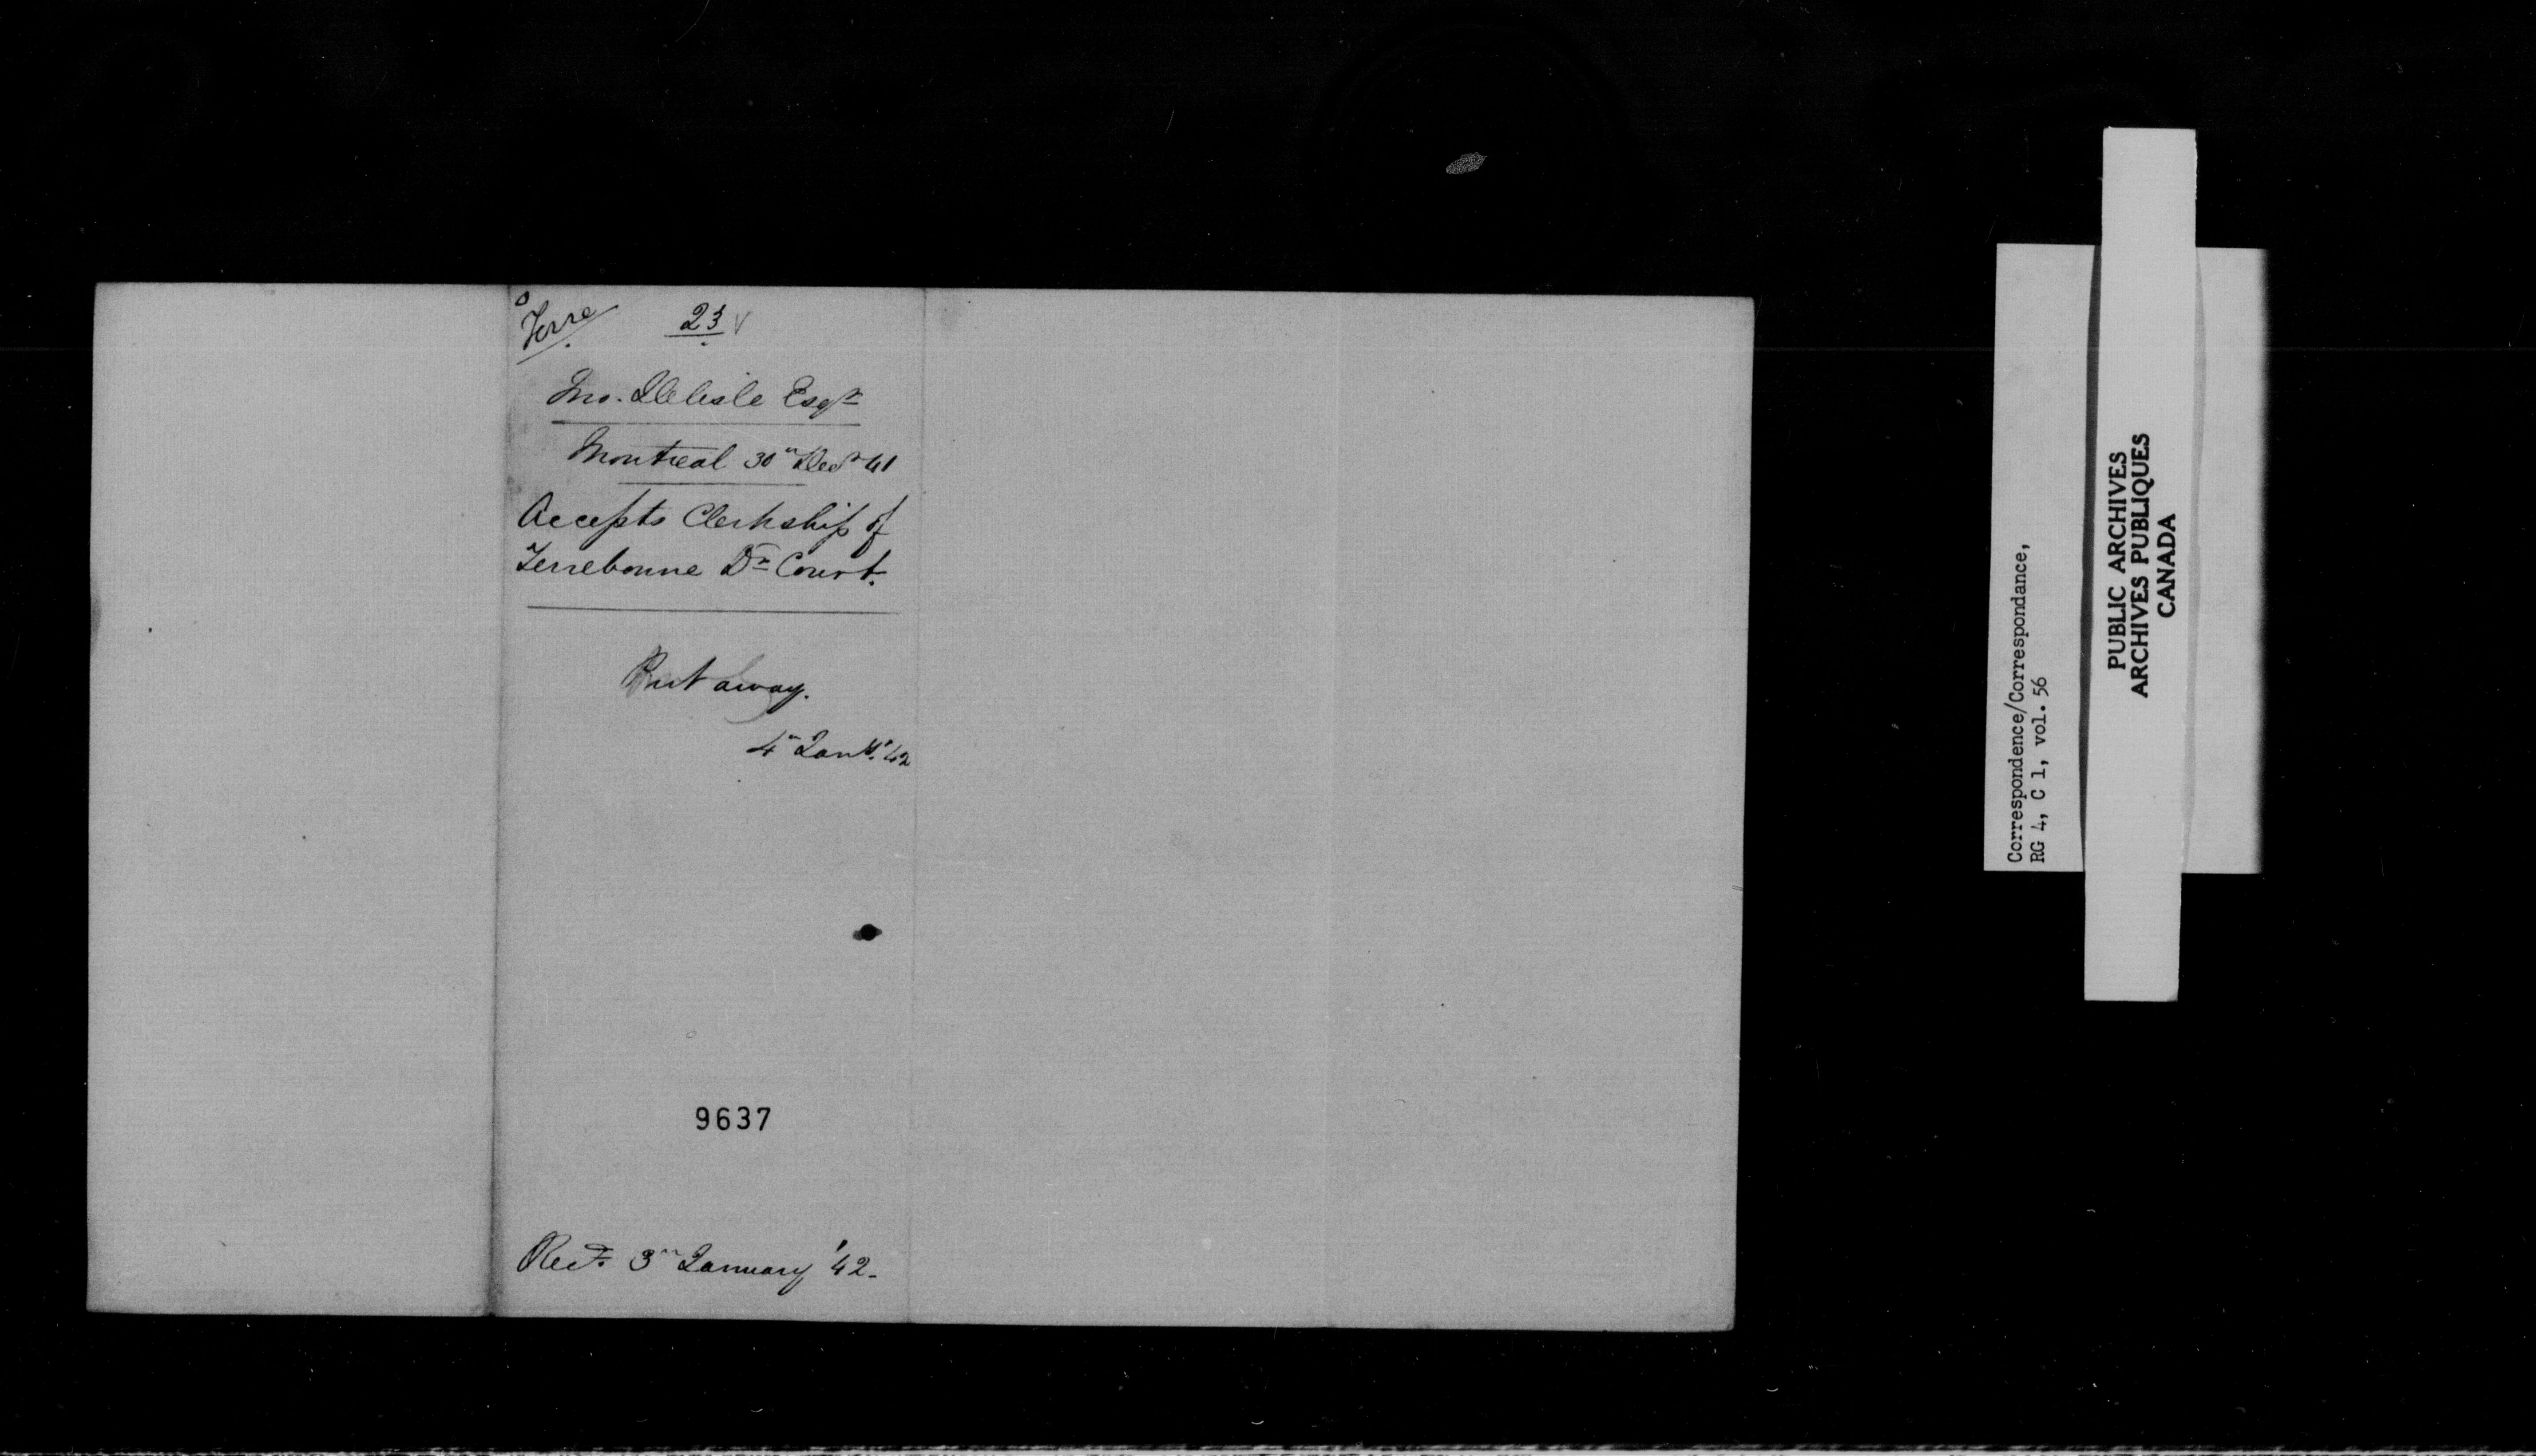 Terre
23
Jno. Delisle Esqr
Montreal 30th Decr 41
Accepts Clerkship of
Terrebonne Dt Court.
Put away.
4th Jany. '42
9637
Recd. 3rd January '42.
Correspondence/Correspondance,
RG 4, C 1, vol. 56
PUBLIC ARCHIVES
ARCHIVES PUBLIQUES
CANADA